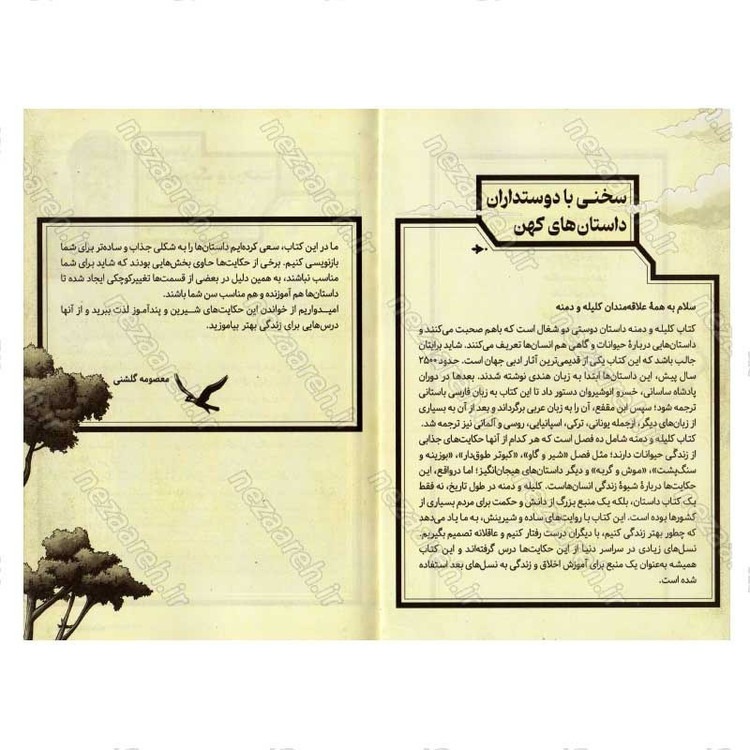 سخنی با دوستداران
داستان‌های کهن
سلام به همهٔ علاقه‌مندان کلیله و دمنه
کتاب کلیله و دمنه داستان دوستی دو شغال است که باهم صحبت می‌کنند و
داستان‌هایی دربارهٔ حیوانات و گاهی هم انسان‌ها تعریف می‌کنند. شاید برایتان
جالب باشد که این کتاب یکی از قدیمی‌ترین آثار ادبی جهان است. حدود ۲۵۰۰
سال پیش، این داستان‌ها ابتدا به زبان هندی نوشته شدند. بعدها در دوران
پادشاه ساسانی، خسرو انوشیروان دستور داد تا این کتاب به زبان فارسی باستانی
ترجمه شود؛ سپس ابن مقفع، آن را به زبان عربی برگرداند و بعد از آن به بسیاری
از زبان‌های دیگر، ازجمله یونانی، ترکی، اسپانیایی، روسی و آلمانی نیز ترجمه شد.
کتاب کلیله و دمنه شامل ده فصل است که هر کدام از آنها حکایت‌های جذابی
از زندگی حیوانات دارند؛ مثل فصل «شیر و گاو»، «کبوتر طوق‌دار»، «بوزینه و
سنگ‌پشت»، «موش و گربه» و دیگر داستان‌های هیجان‌انگیز؛ اما درواقع، این
حکایت‌ها دربارهٔ شیوهٔ زندگی انسان‌هاست. کلیله و دمنه در طول تاریخ، نه فقط
یک کتاب داستان، بلکه یک منبع بزرگ از دانش و حکمت برای مردم بسیاری از
کشورها بوده است. این کتاب با روایت‌های ساده و شیرینش، به ما یاد می‌دهد
که چطور بهتر زندگی کنیم، با دیگران درست رفتار کنیم و عاقلانه تصمیم بگیریم.
نسل‌های زیادی در سراسر دنیا از این حکایت‌ها درس گرفته‌اند و این کتاب
همیشه به‌عنوان یک منبع برای آموزش اخلاق و زندگی به نسل‌های بعد استفاده
شده است.
ما در این کتاب، سعی کرده‌ایم داستان‌ها را به شکلی جذاب و ساده‌تر برای شما
بازنویسی کنیم. برخی از حکایت‌ها حاوی بخش‌هایی بودند که شاید برای شما
مناسب نباشند، به همین دلیل در بعضی از قسمت‌ها تغییر کوچکی ایجاد شده تا
داستان‌ها هم آموزنده و هم مناسب سن شما باشند.
امیدواریم از خواندن این حکایت‌های شیرین و پندآموز لذت ببرید و از آنها
درس‌هایی برای زندگی بهتر بیاموزید.
معصومه گلشنی
nezaareh.ir